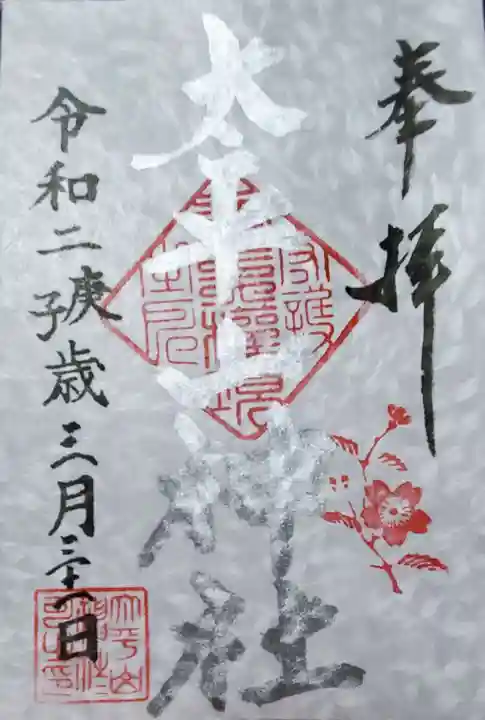 奉拝
太平山神社
令和二庚子歳三月三十一日